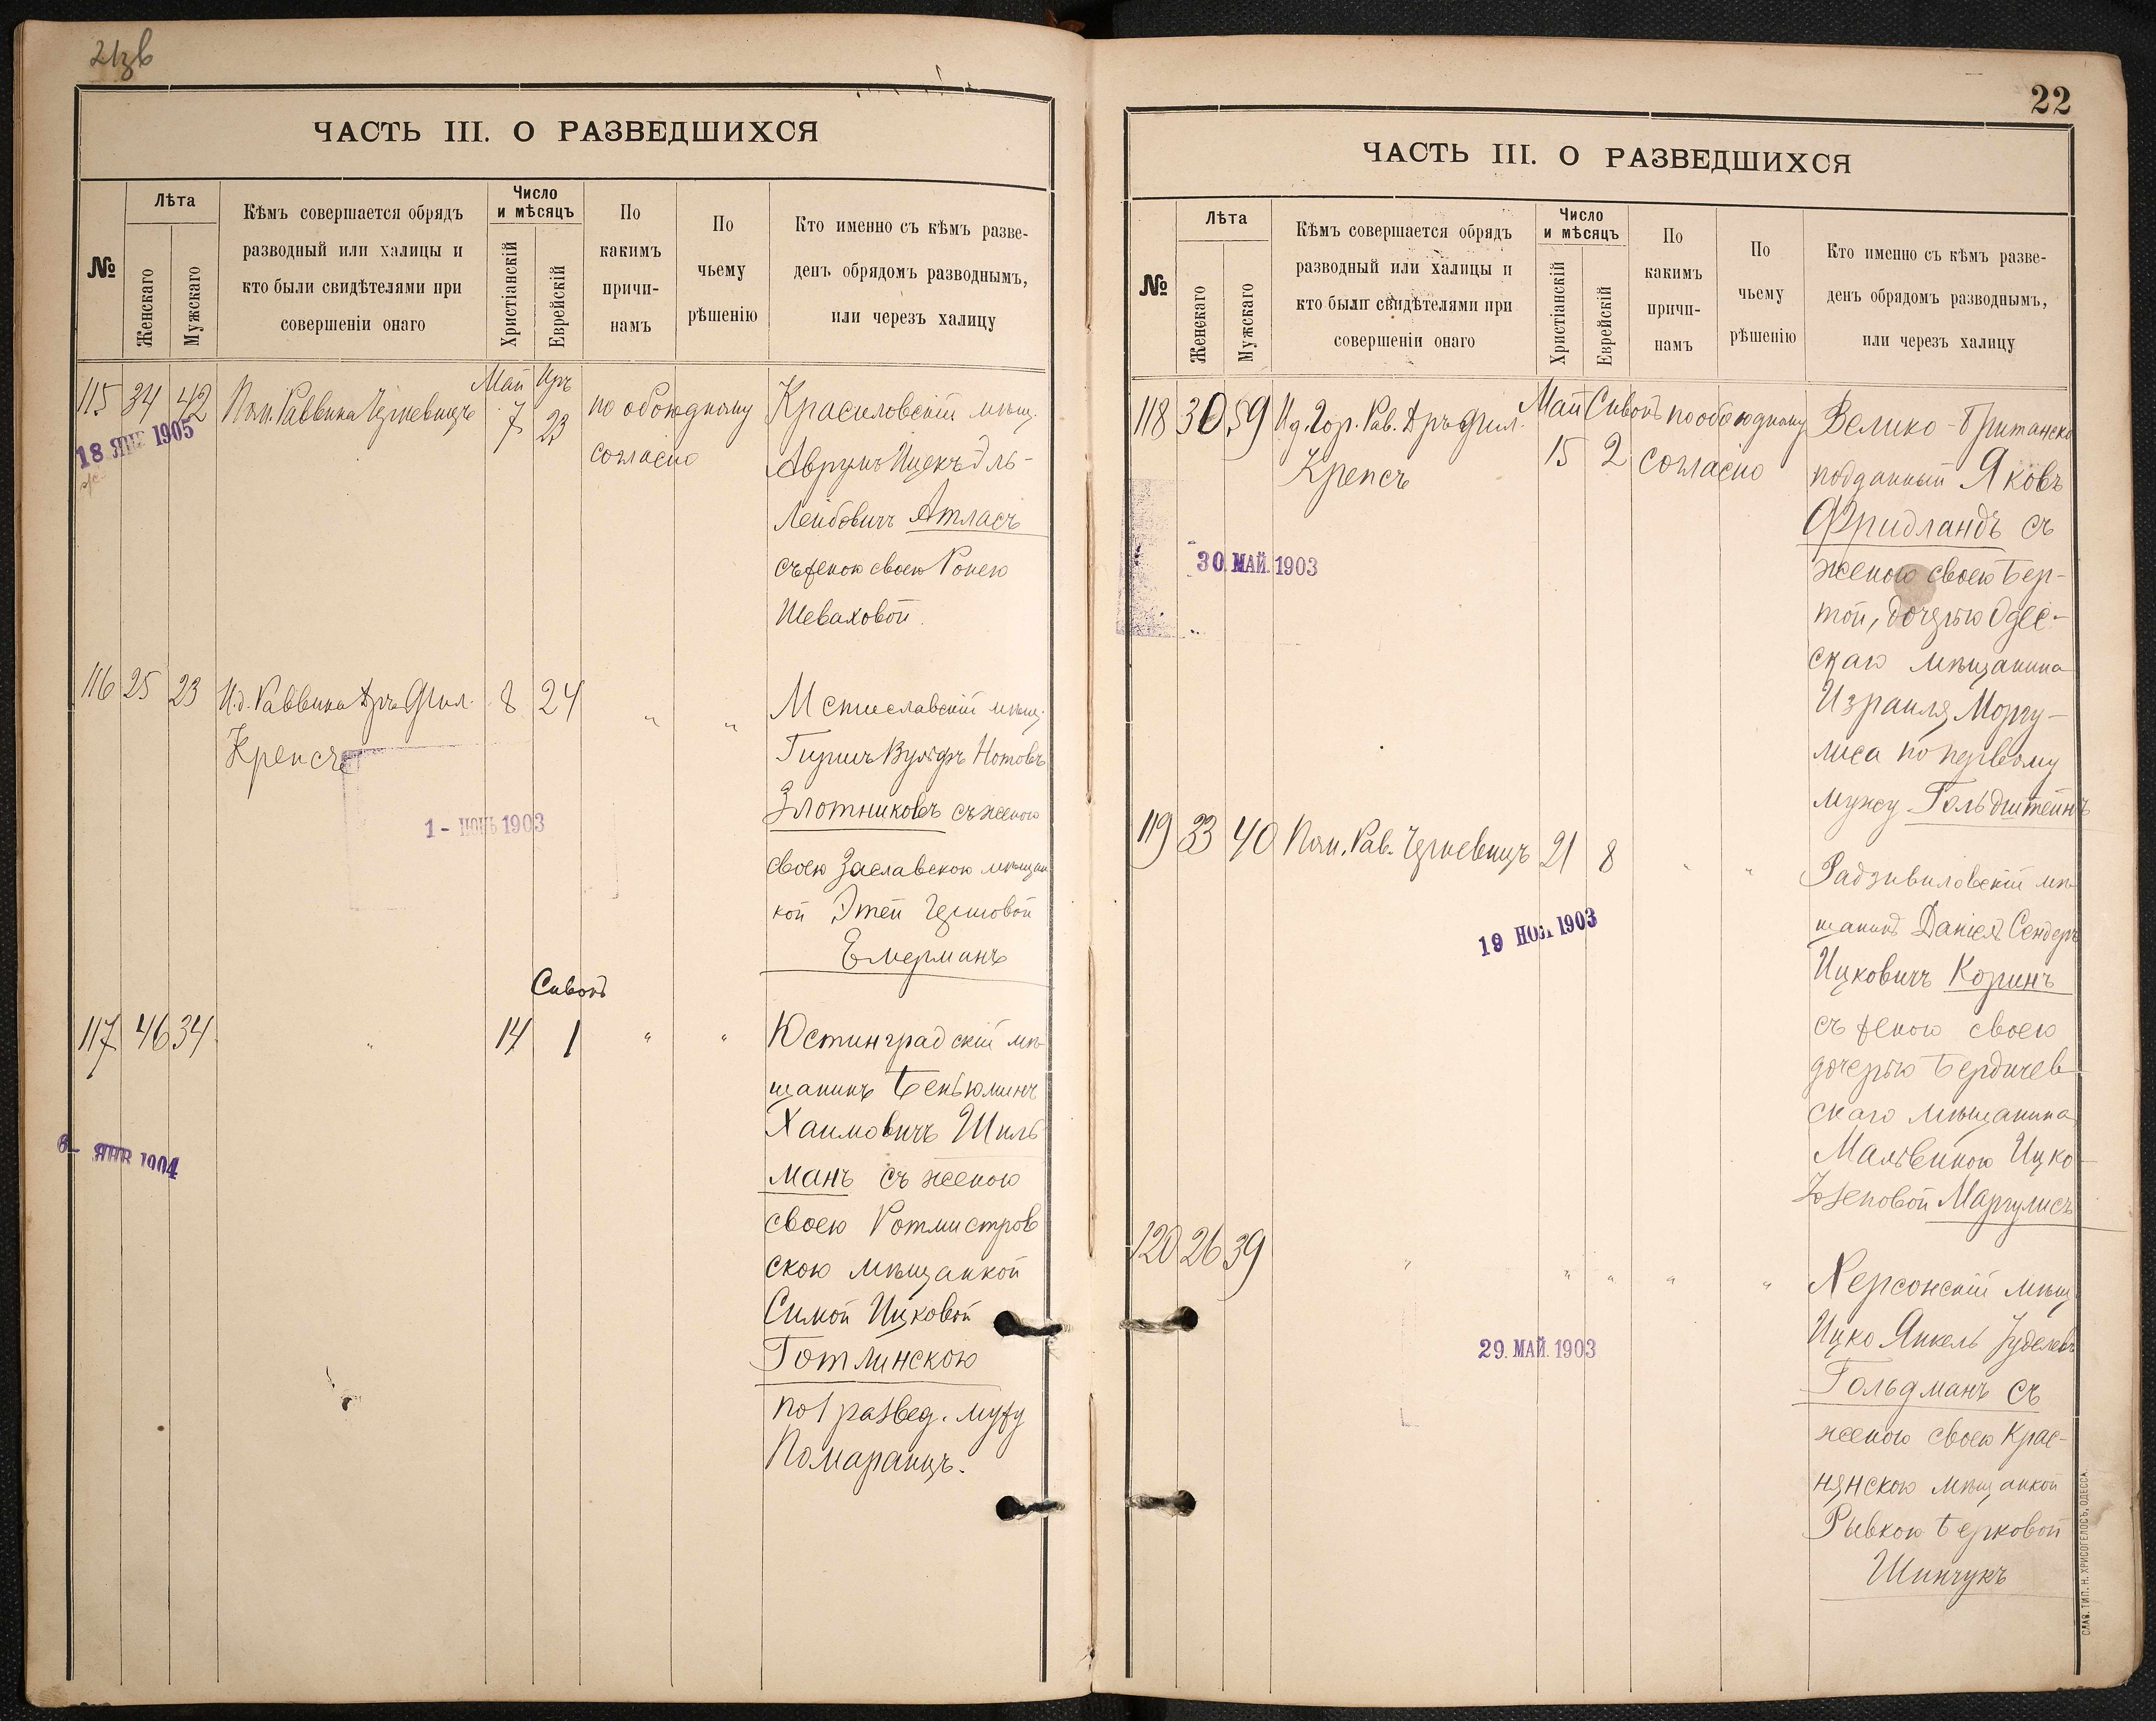 21зв
ЧАСТЬ III. О РАЗВЕДШИХСЯ
№
Лѣта
Женскаго
Мужскаго
Кѣмъ совершается обрядъ
разводный или халицы и
кто были свидѣтелями при
совершеніи онаго
Число
и мѣсяцъ
Христіанскій
Еврейскій
По
какимъ
причи-
намъ
По
чьему
рѣшенію
Кто именно съ кѣмъ разве-
денъ обрядомъ разводнымъ,
или черезъ халицу
115 34 42 Пом. Раввина Черневицъ
Май 7
Иръ 23
по обоюдному
согласію
Красиловскій мѣщ.
Аврумъ Ицекъ Эль-
Лейбовичъ Атласъ
съ женою своею Ронею
Шеваховой.
18 ЯНВ 1905
116 25 23 И.д. Раввина Дръ Фил. 8 24 " "
Крепсъ
Мстиславскій мѣщ.
Гиршъ Вульфъ Нотовъ
Злотниковъ съ женою
своею Заславскою мѣщан
кой Этей Гершовой
Емерманъ
1 - ИЮНЬ 1903
Сивонъ
117 46 34 " 14 1 " "
Юстинградскій мѣ-
щанинъ Беньюминъ
Хаимовичъ Шиль
манъ съ женою
своею Ротмистров
скою мѣщанкой
Симой Ицковой
Готлинскою
по 1 развед. мужу
Помаранцъ.
6 - ЯНВ 1904
22
ЧАСТЬ III. О РАЗВЕДШИХСЯ
№
Лѣта
Женскаго
Мужскаго
Кѣмъ совершается обрядъ
разводный или халицы и
кто были свидѣтелями при
совершеніи онаго
Число
и мѣсяцъ
Христіанскій
Еврейскій
По
какимъ
причи-
намъ
По
чьему
рѣшенію
Кто именно съ кѣмъ разве-
денъ обрядомъ разводнымъ,
или черезъ халицу
118 30 59 И.д. Гор. Рав. Дръ Фил.
Крепсъ
Май 15
Сивонъ 2
по обоюдному
согласію
Велико-Британскій
подданный Яковъ
Фридландъ съ
женою своею Бер-
той, дочерью Одес-
скаго мѣщанина
Израиля Моргу-
лиса по первому
мужу Гольдштейнъ
30. МАЙ. 1903
119 33 40 Пом. Рав. Черневицъ 21 8 " "
Радзивиловскій мѣ-
щанинъ Даніелъ Сендеръ
Ицковичъ Коринъ
съ женою своею
дочерью Бердичев-
скаго мѣщанина
Мальвиною Ицко-
Іозеповой Маргулисъ
19 НОЯ 1903
120 26 39 " " " " "
Херсонскій мѣщ.
Ицко Янкель Іуделевъ
Гольдманъ съ
женою своею Крас-
нянскою мѣщанкой
Рывкою Берковой
Шинчукъ
29. МАЙ. 1903
СЛАВ. ТИП. Н. ХРИСОГЕЛОСЪ, ОДЕССА.